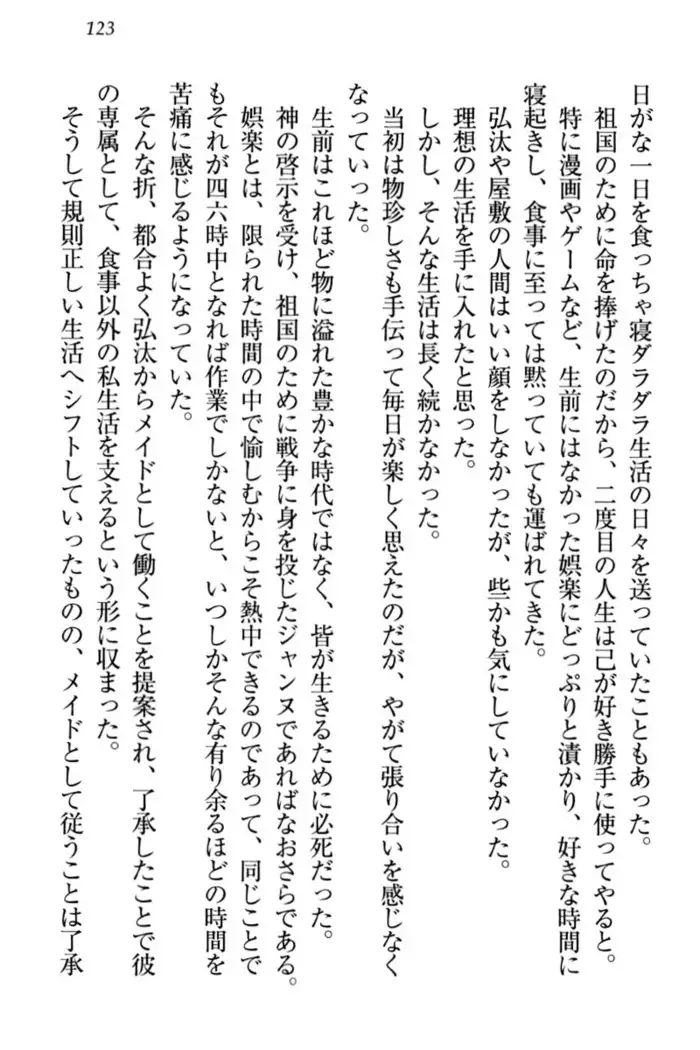 123
日がな一日を食っちゃ寝ダラダラ生活の日々を送っていたこともあった。
祖国のために命を捧げたのだから、二度目の人生は己が好き勝手に使ってやると。
特に漫画やゲームなど、生前にはなかった娯楽にどっぷりと漬かり、好きな時間に
寝起きし、食事に至っては黙っていても運ばれてきた。
弘汰や屋敷の人間はいい顔をしなかったが、些かも気にしていなかった。
理想の生活を手に入れたと思った。
しかし、そんな生活は長く続かなかった。
当初は物珍しさも手伝って毎日が楽しく思えたのだが、やがて張り合いを感じなく
なっていった。
生前はこれほど物に溢れた豊かな時代ではなく、皆が生きるために必死だった。
神の啓示を受け、祖国のために戦争に身を投じたジャンヌであればなおさらである。
娯楽とは、限られた時間の中で愉しむからこそ熱中できるのであって、同じことで
もそれが四六時中となれば作業でしかないと、いつしかそんな有り余るほどの時間を
苦痛に感じるようになっていた。
そんな折、都合よく弘汰からメイドとして働くことを提案され、了承したことで彼
の専属として、食事以外の私生活を支えるという形に収まった。
そうして規則正しい生活へシフトしていったものの、メイドとして従うことは了承